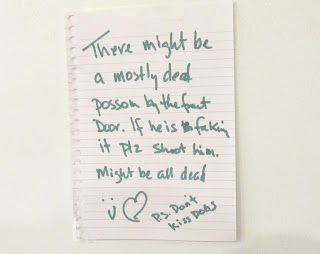 There might be
a mostly dead
possom by the front
Door. If he is faking
it plz shoot him.
Might be all dead
P.S. Don't
kiss Dogs